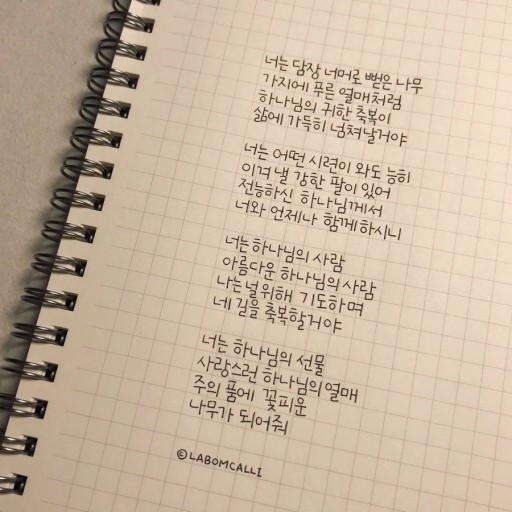 너는 담장 너머로 뻗은 나무
가지에 푸른 열매처럼
하나님의 귀한 축복이
삶에 가득히 넘쳐날거야
너는 어떤 시련이 와도 능히
이겨 낼 강한 팔이 있어
전능하신 하나님께서
너와 언제나 함께하시니
너는 하나님의 사람
아름다운 하나님의 사람
나는 널 위해 기도하며
네 길을 축복할거야
너는 하나님의 선물
사랑스런 하나님의 열매
주의 품에 꽃피운
나무가 되어줘
©LABOMCALLI